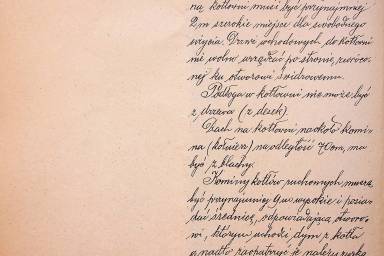 na kotłowni musi być przynajmniej
2 m szerokie miejsce dla swobodnego
wyjścia. Drzwi wchodowych do kotłowni
nie wolno urządzać po stronie, zwróco-
nej ku otworowi świdrowemu.
Podłoga w kotłowni nie może być
z drzewa (z desek).
Dach na kotłowni naokoło komi-
na (kołnierz) na odległość 70 cm, ma
być z blachy.
Kominy kotłów ruchomych muszą
być przynajmniej 9 m wysokie i posia-
dać średnicę, odpowiadającą otworo-
wi, którym uchodzi dym z kotła
a nadto zaopatrzyć je należy